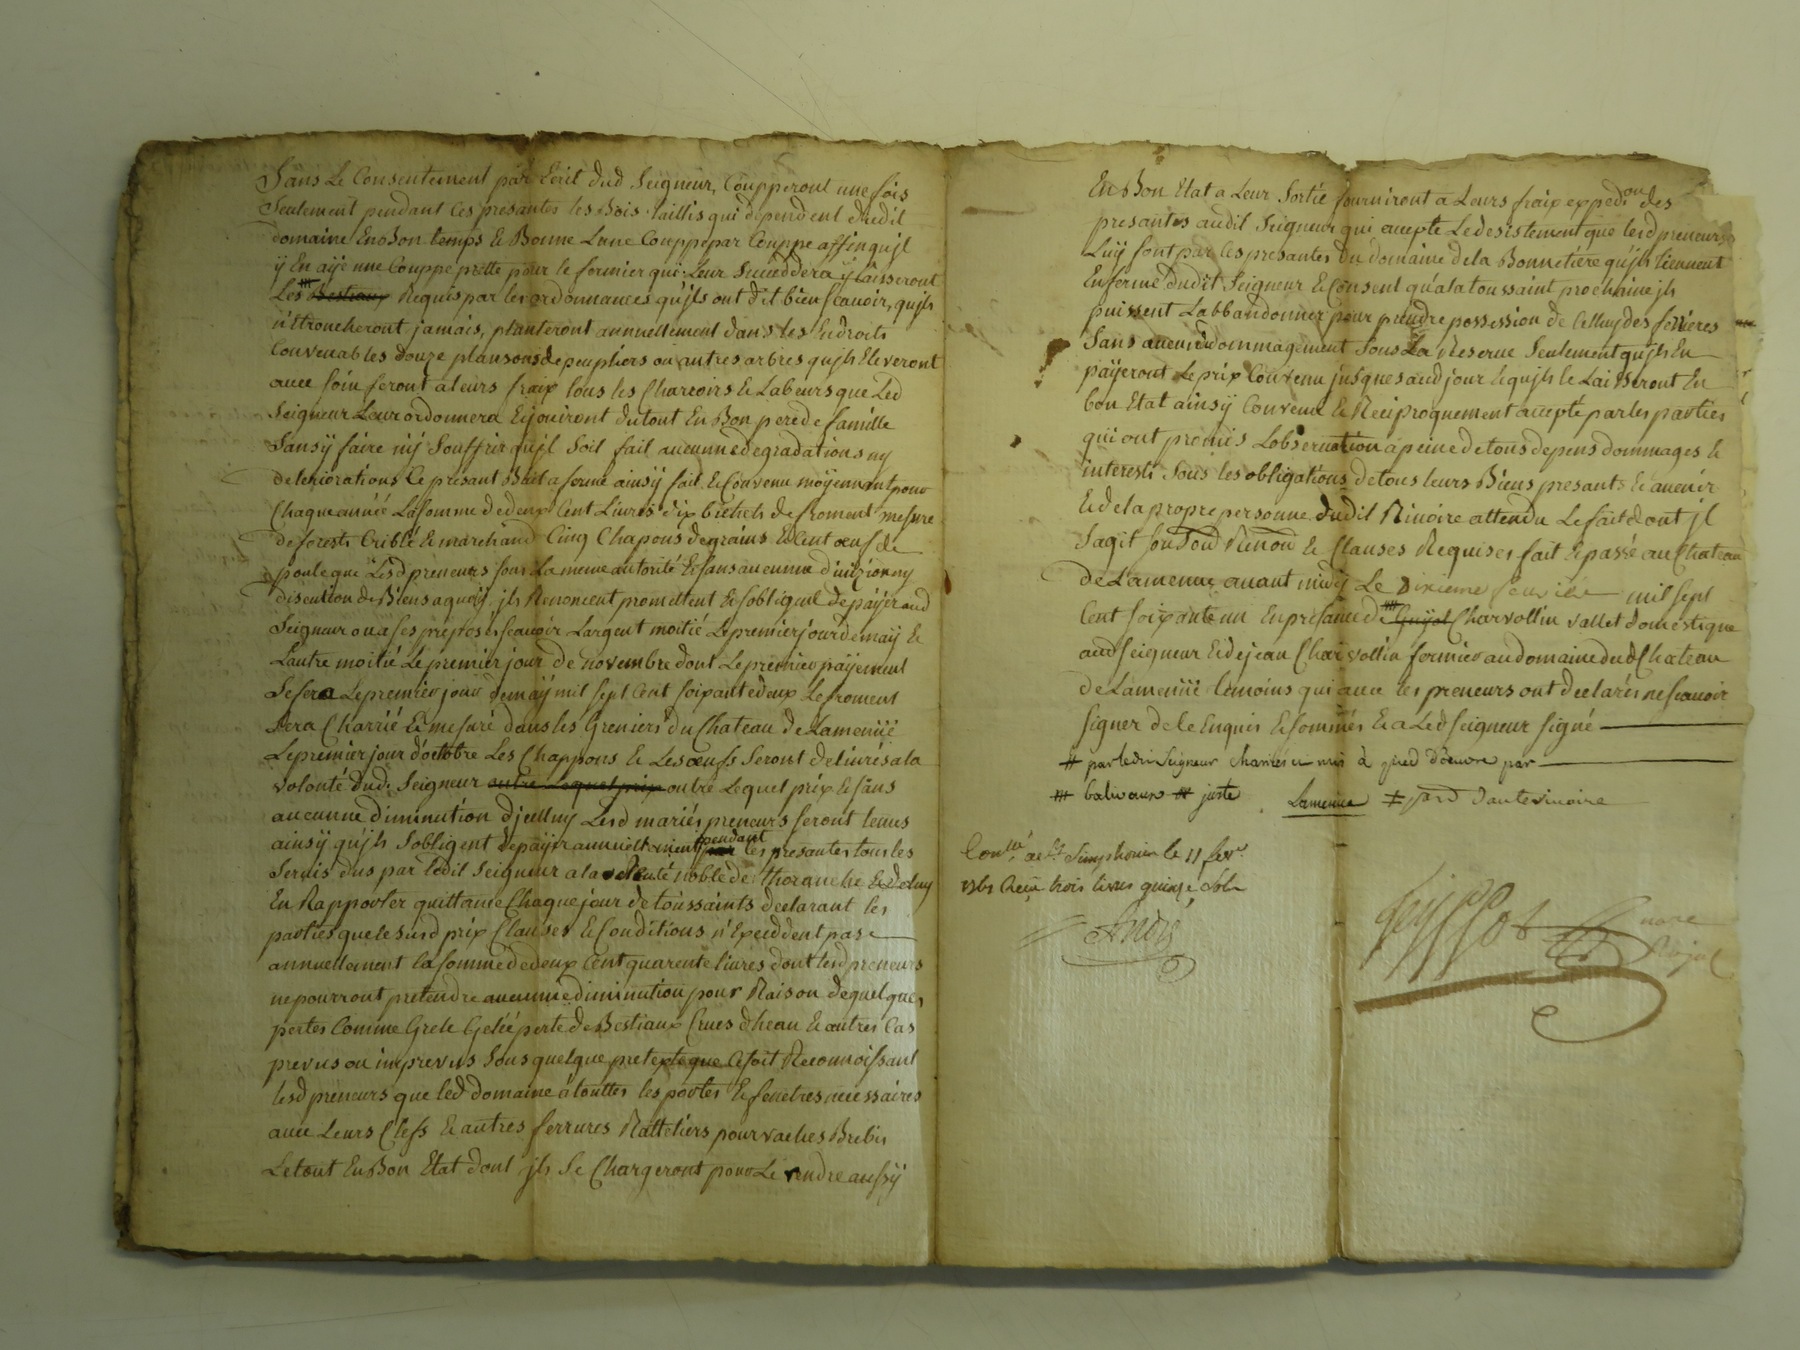 Sans Le Consentement par Ecrit dud Seigneur, Coupperont une fois
Seulement pendant les presantes les Bois Taillis qui dependent dudit
domaine En bon temps & Bonne Lune Couppe par Couppe affin qu'jl
ÿ En aÿe une Couppe prette pour le fermier qui Leur Succeddera ÿ Laisseront
Les Bestiaux Requis par les ordonnances qu'jls ont dit bien scauoir, qu'jls
n'Etroncheront jamais, planteront annuellement dans les Endroits
Convenables douze plansons de peupliers ou autres arbres qu'jls Eleveront
avec soin feront a leurs fraix tous les Charrois & Labeurs que Led
Seigneur Leur ordonnera & joüiront du tout En Bon pere de famille
Sans ÿ faire nÿ Souffrir qu'jl Soit fait aucunne degradations nÿ
deteriorations Le présant Bail a ferme ainsÿ fait & Convenu moÿennant pour
Chaque année La somme de deux Cent Livres dix bichets de froment mesure
de forests Criblé & marchand Cinq Chapons de grains & Cent œufs de
poule que Lesd preneurs sous La meme autorité & sans aucunne division nÿ
discution de Biens a quoÿ jls Renoncent promettent & s'obligent de paÿer aud
Seigneur ou a ses préposés scauoir Largent moitié Le premier jour de maÿ &
Lautre moitié Le premier jour de novembre dont Le premier païement
Se fera Le premier jour de maÿ mil sept Cent soixante deux Le froment
Sera Charrié & mesuré dans les Greniers du Chateau de Lamenüe
Le premier jour d'octobre Les Chappons & Les œufs Seront delivrés a la
volonté dud. Seigneur outre Lequel prix outre Lequel prix & sans
aucunne diminution d'jcelluy Lesd mariés preneurs seront tenus
ainsy qu'jls s'obligent de paÿer annuellement pendant les presantes tous les
Servis dus par ledit Seigneur a la Rente noble de Thoranche & de luy
En Rapporter quittance Chaque jour de toussaints declarant les
parties que le susd prix Clauses & Conditions n'Exceddent pas
annuellement la somme de deux Cent quarente livres dont lesd preneurs
ne pourront pretendre aucunne diminution pour Raison de quelques
pertes Comme Grele Gelée perte de Bestiaux Crues d'heau & autres Cas
prevus ou imprevus sous quelque pretexte que ce soit Reconnoissant
lesd preneurs que led domaine a touttes les portes & fenetres necessaires
avec Leurs Clefs & autres ferrures Ratteliers pour vaches Brebis
Le tout En Bon Etat dont jls Se Chargeront pour Le rendre aussÿ
En Bon Etat a Leur Sortie fourniront a Leurs fraix expedon des
presantes audit Seigneur qui accepte Le desistement que lesd preneurs
Luÿ font par les presantes du domaine de la Bonnetiére qu'jls tiennent
En ferme dudit Seigneur & Consent qu'a la toussaint prochaine jls
puissent L'abbandonner pour prendre possession de Celluy des feriéres
Sans aucun dedommagement Sous La Reserve Seulement qu'jls En
païeront Le prix Convenu jusques aud jour & qu'jls le Laisseront En
bon Etat ainsÿ Convenu & Reciproquement accepté par les parties
qui ont promis L'observation a peine de tous depens dommages &
interests Sous les obligations de tous leurs Biens presants & avenir
& de la propre personne dudit Rinoire attendu Le fait dont jl
S'agit soumon Renon & Clauses Requises fait & passé au Chateau
de Lamenue avant midÿ Le dixieme feuvrié mil sept
Cent soixante un En présance de Guyot Charvollin vallet domestique
aud Seigneur & de jean Charvollin fermier au domaine dud Chateau
de Lamenüe témoins qui avec les preneurs ont declarés ne scauoir
signer de ce Enquis & sommés & a Led Seigneur signé
# par ledit Seigneur charriés et mis à pied d'oeuvre par
balivaux juste Lamenue
Conllé a St Simphorien le 11 fevr
1761 Reçu trois livres quinze sols
André
nore
Royal